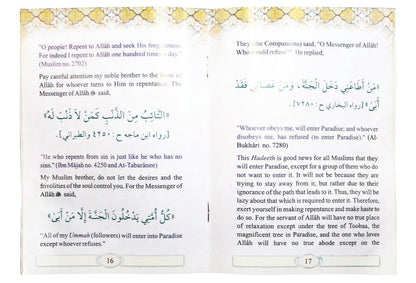 "O people! Repent to Allâh and seek His forgiveness.
For indeed I repent to Allâh one hundred times a day."
(Muslim no. 2702)
Pay careful attention my noble brother to the favor of
Allâh for whoever turns to Him in repentance. The
Messenger of Allâh ﷺ said,
«التَّائِبُ مِنَ الذَّنْبِ كَمَنْ لاَ ذَنْبَ لَهُ»
[رواه ابن ماجه ح: ٤٢٥٠ والطبراني].
"He who repents from sin is just like he who has no
sins." (Ibn Mijah no. 4250 and At-Tabarânee)
My Muslim brother, do not let the desires and the
frivolities of the soul control you. For the Messenger of
Allâh ﷺ said,
«كُلُّ أُمَّتِي يَدْخُلُونَ الْجَنَّةَ إِلَّا مَنْ أَبَى»
"All of my Ummah (followers) will enter into Paradise
except whoever refuses."
16
They (the Companions) said, "O Messenger of Allâh!
Who would refuse?" He replied,
«مَنْ أَطَاعَنِي دَخَلَ الْجَنَّةَ، وَمَنْ عَصَانِي فَقَدْ
أَبَى» [رواه البخاري ح: ٧٢٨٠].
"Whoever obeys me, will enter Paradise; and whoever
disobeys me, has refused (to enter Paradise)." (Al-
Bukhâri no. 7280)
This Hadeeth is good news for all Muslims that they
will enter Paradise, except for a group of them who do
not want to enter it. It will not be because they are
trying to stay away from it, but rather due to their
ignorance of the path that leads to it. Thus, they will be
lazy about that which is required to enter it. Therefore,
exert yourself in making repentance and make haste to
do so. For the servant of Allâh will have no true place
of relaxation except under the tree of Tooba, the
magnificent tree in Paradise, and the one who loves
Allâh will have no true abode except on the
17